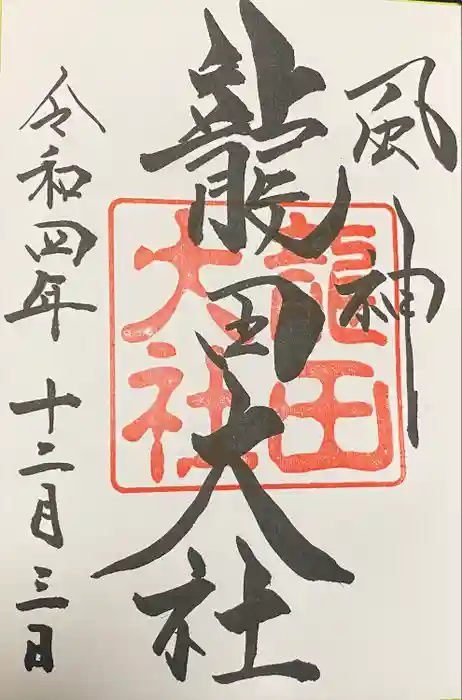 風神
龍田大社
龍田
大社
令和四年 十二月三日